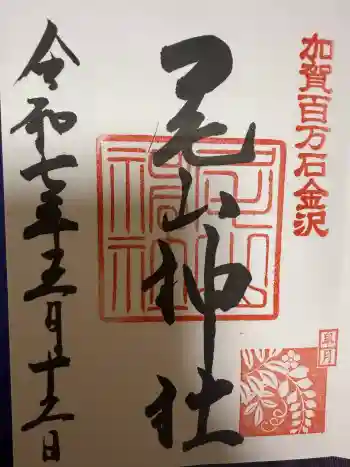 加賀百万石金沢
皐月
尾山神社
尾山神社
令和七年五月 日